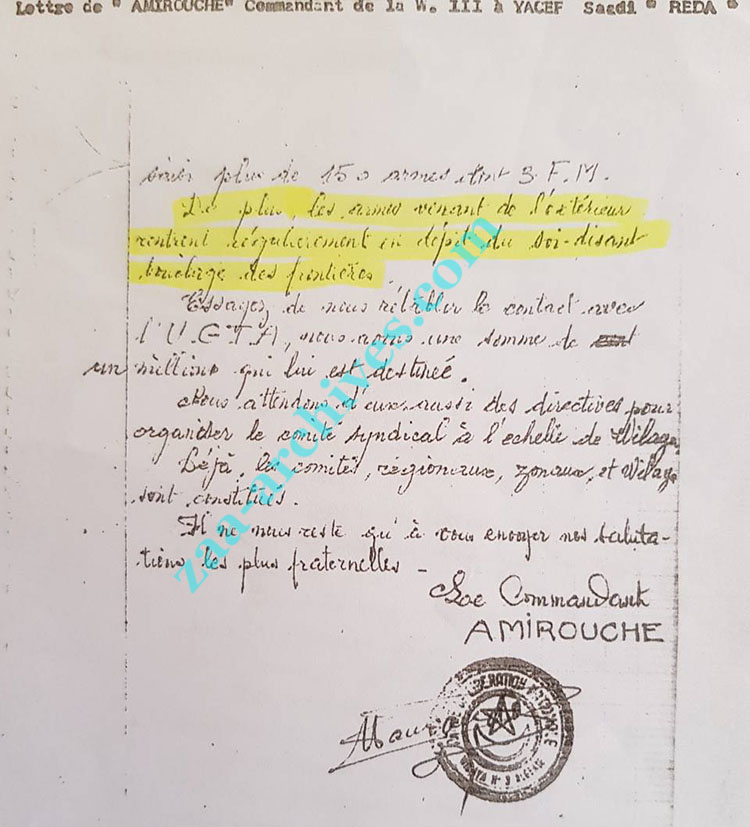 Lettre de " AMIROUCHE" Commandant de la W. III à YACEF Saadi " REDA "
plus de 150 armes dont 3 F.M.
De plus, les armes venant de l'extérieur
rentrent régulièrement en dépit du soi-disant
bouclage des frontières.
Essayez de nous rétablir le contact avec
l'U.G.T.A, nous avons une somme de
un millions qui lui est destinée.
Nous attendons d'eux aussi des directives pour
organiser le comité syndical à l'echelle de Wilaya
Déjà, les comités, régionaux, zonaux, et Wilaya
sont constitués.
Il ne nous reste qu'à vous envoyer nos saluta-
tions les plus fraternelles -
Le Commandant
AMIROUCHE
LIBERATION NATIONALE
WILAYA N° 3
zaa-archives.com